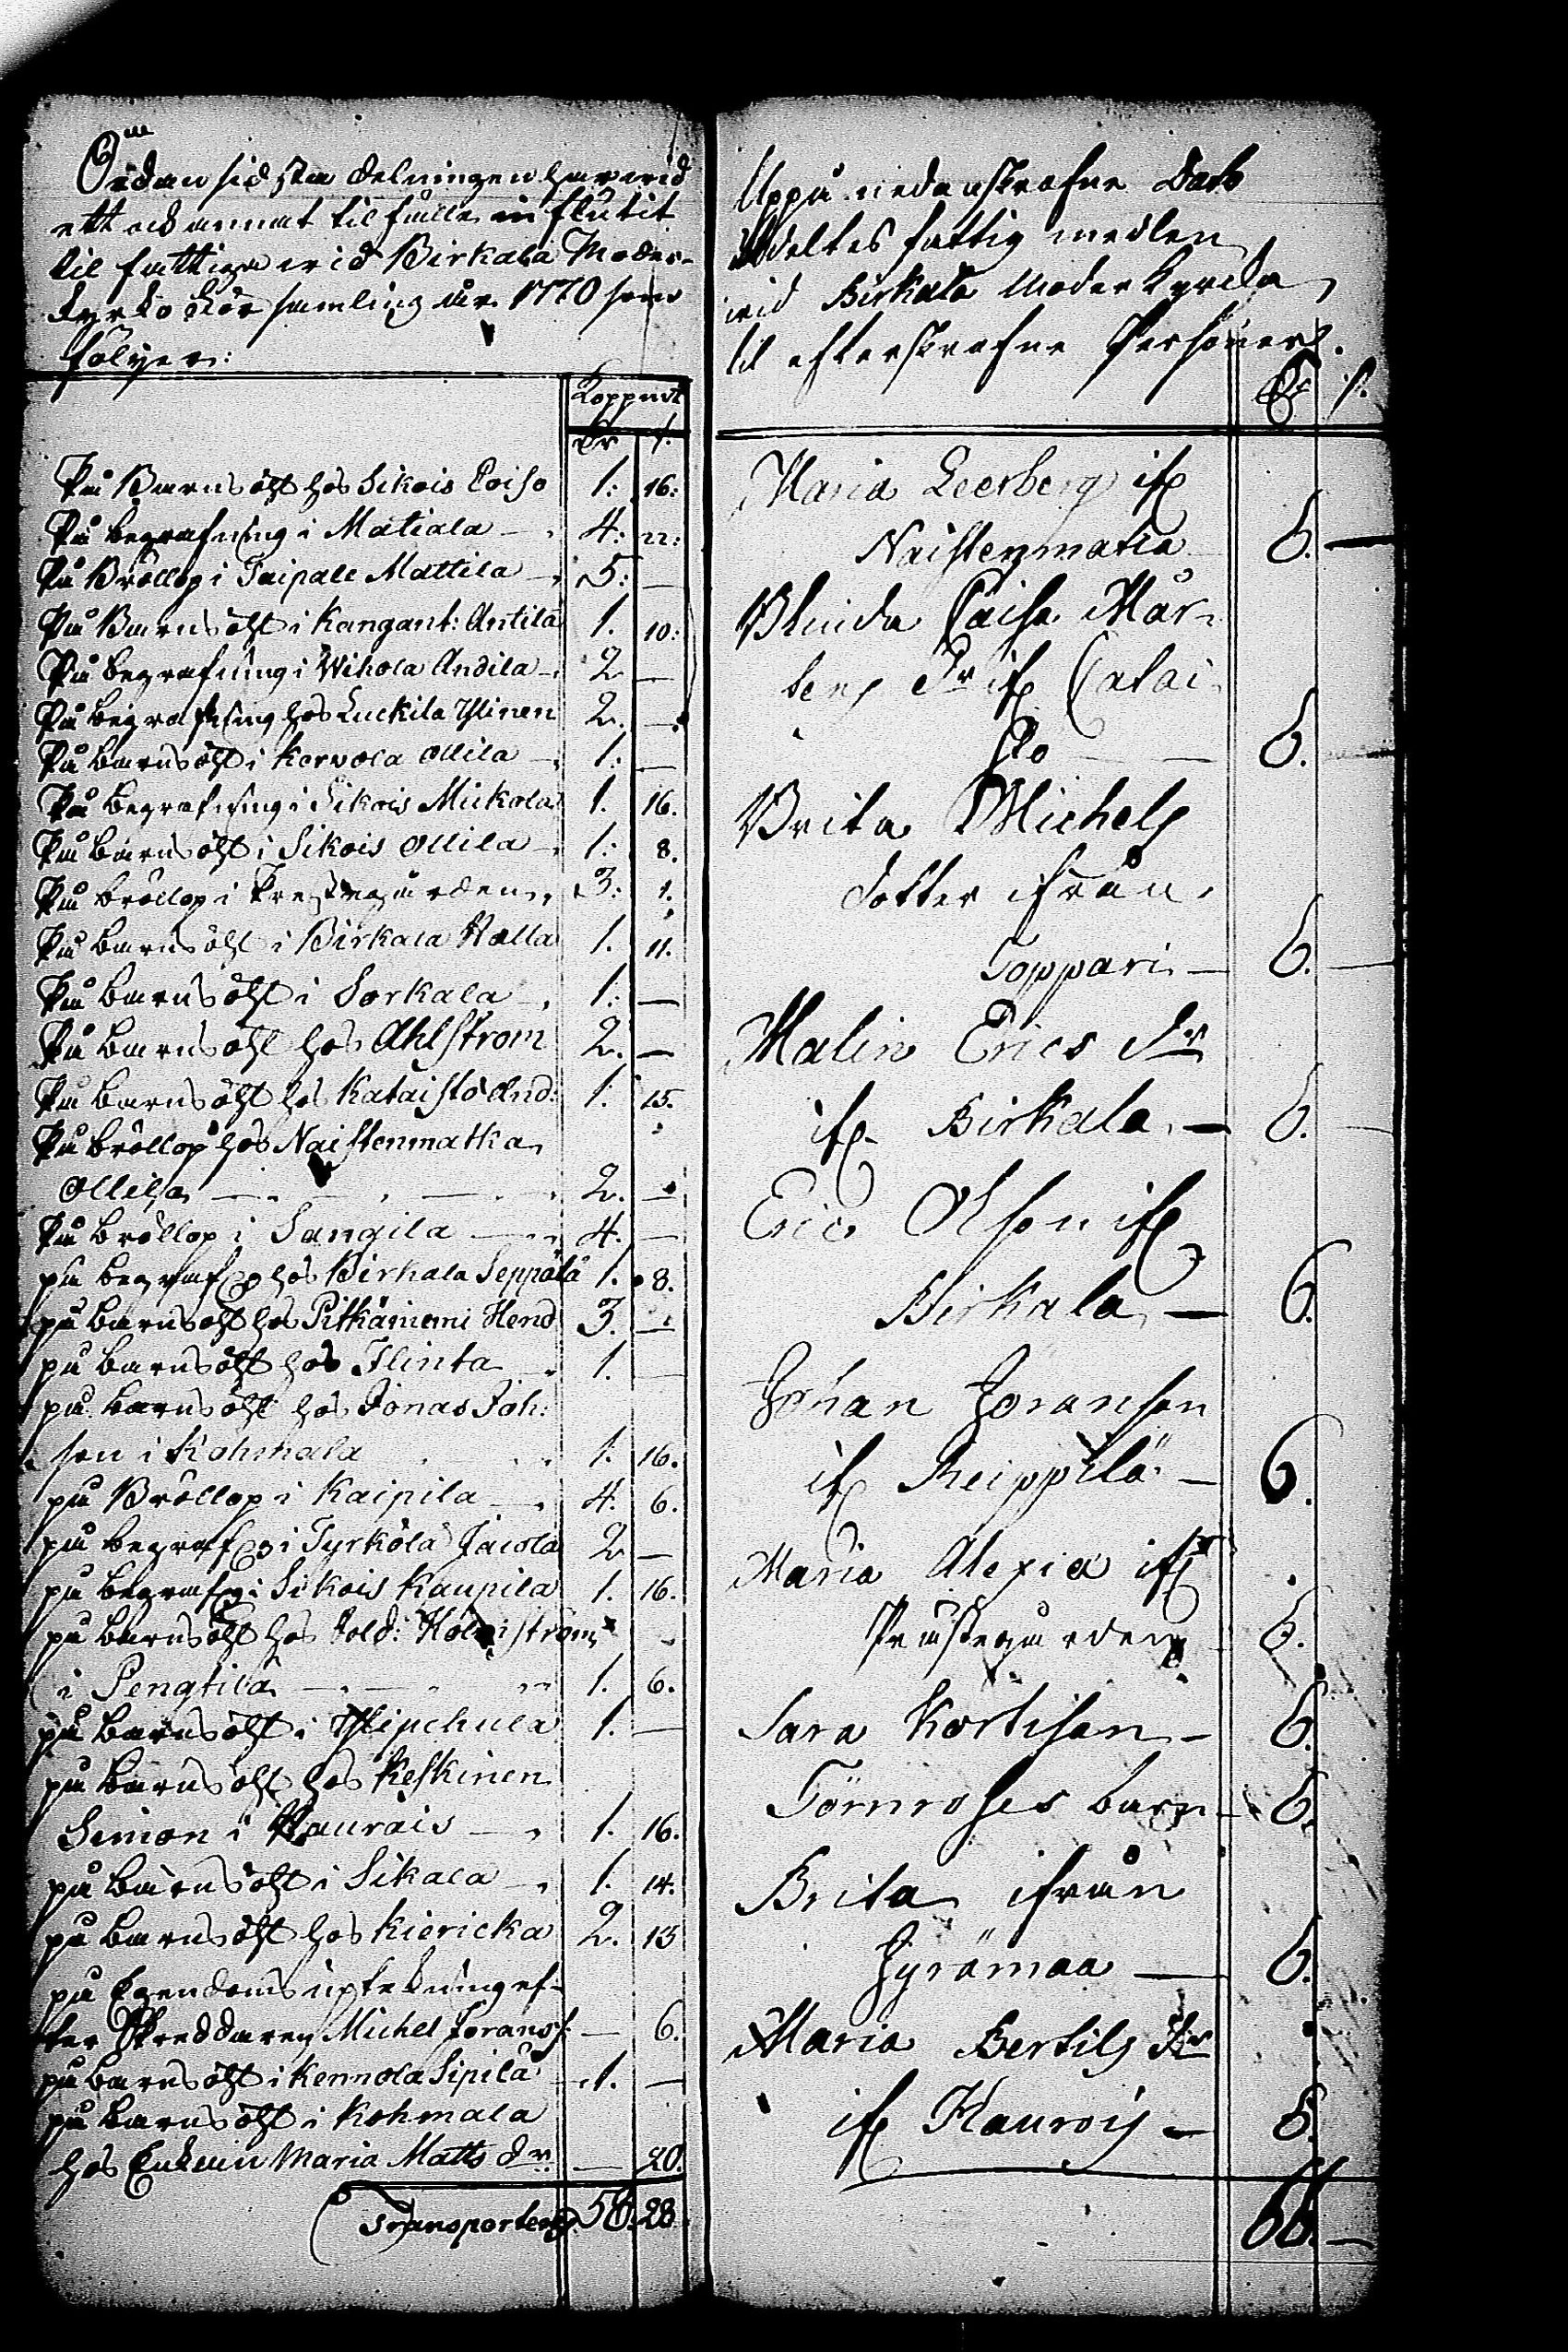 Sedan sidsta delningen har wid
ett och annat tilfälle influtit
til fattiga wid Birkala Moder-
kyrko församling år 1770 som
följer:
Kopp mt
Dr /.
På Barnsöhl hos Sikois Poiso 1: 16:
På begrafning i Matiala — 4: 22:
På Bröllop i Taipale Mattila — 5: —
På Barnsöhl i Kangant: Antila 1. 10:
På begrafning i Wihola Andila — 2 —
På begrafning hos Luckila Ylinen 2. —
På barnsöhl i Korvola Ollila — 1: —
På begrafning i Sikois Mickola 1. 16.
På barnsöhl i Sikois Ollila — 1: 8.
På bröllop i Prestegården 3: 1.
På barnsöhl i Birkala Halla 1. 11.
På barnsöhl i Sorkala 1: —
På barnsöhl hos Ahlström 2. —
På barnsöhl hos Kataisto And: 1. 15.
På bröllop hos Naistenmatka
Ollila — 2. —
På bröllop i Sangila — 4. —
på begrafg hos Birkala Seppälä 1. 8.
på barnsöhl hos Pitkäniemi Hend 3. —
på barnsöhl hos Flinta 1. —
på barnsöhl hos Jonas Joh:
son i Kohmala 1. 16.
på Bröllop i Kaipila — 4. 6.
på begrafg i Tyrkölä Jacola 2 —
på begrafg i Sikois Kaupila 1. 16.
på barnsöhl hos Sold: Holmström
i Pengtilä — 1. 6.
på barnsöhl i 1. —
på barnsöhl hos Keskinen
Simon i Haurois — 1. 16.
på barnsöhl i Sikala — 1. 14.
på barnsöhl hos Kiericka 2. 13
på Egendoms upteckning ef-
ter Skreddaren Michel Jöranss: — 6.
på barnsöhl i Kennola Sipilä 1. —
på barnsöhl i Kohmala
hos Enkan Maria Matts dr — 20
Transporteras 58. 28.
Uppå nedanskrefne Dato
deltes fattig medlen
wid Birkala Moderkyrcka
til efterskrefne Personer.
Dr /.
Maria Leerberg if
Naistenmatka 6. —
Blinda Caisa Mår-
tens dr if Catai-
sto — 6. —
Brita Michels
dotter ifrån
Toppari — 6. —
Malin Erics dr
if Birkala — 6. —
Eric Olsson if
Birkala — 6.
Johan Jöransson
if Reippilä — 6.
Maria Alexia if
Prästegården 6.
Sara Kortisen — 6.
Törnroses barn — 6.
Brita ifrån
Jyrämaa — 6.
Maria Bertils dr
if Haurois — 6.
66. —